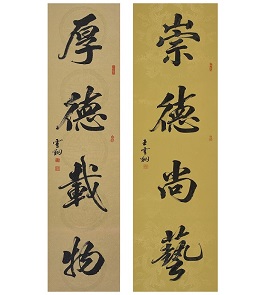 崇德尚藝
厚德載物